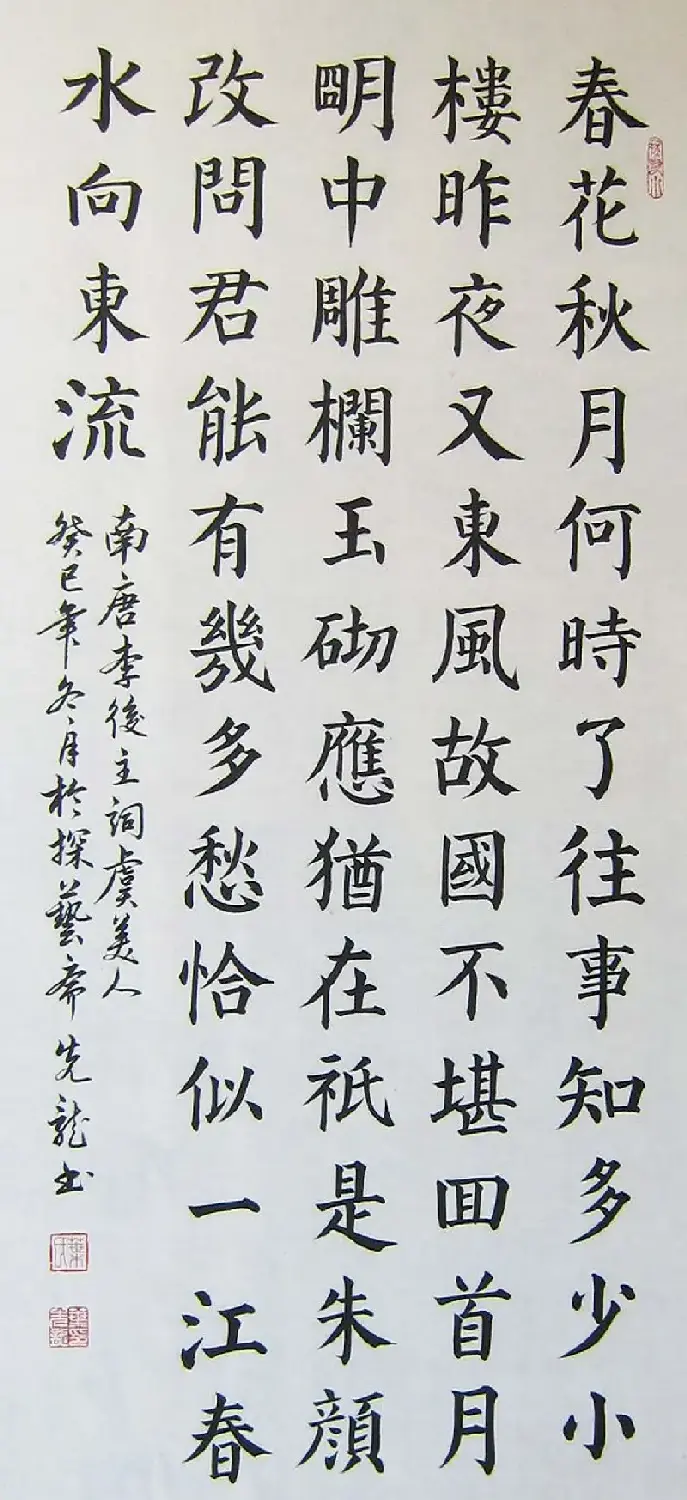 春花秋月何時了往事知多少小
樓昨夜又東風故國不堪回首月
明中雕欄玉砌應猶在祇是朱顔
改問君能有幾多愁恰似一江春
水向東流
南唐李後主詞虞美人
癸巳年冬月於探藝齋先龍书
葉氏